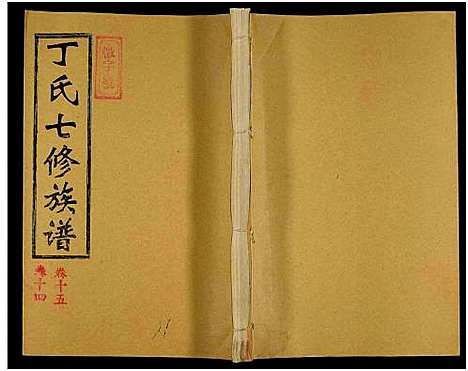 丁氏七修族谱
卷十五
卷十四